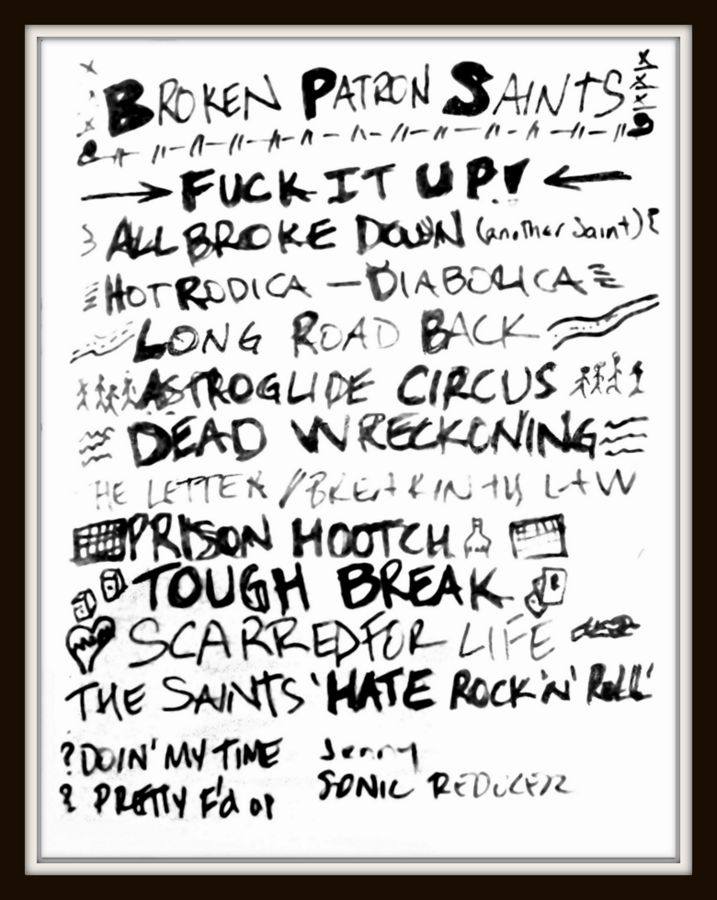 BROKEN PATRON SAINTS
FUCK IT UP!
ALL BROKE DOWN (another Saint)
HOT RODICA — DIABOLICA
LONG ROAD BACK
ASTROGLIDE CIRCUS
DEAD WRECKONING
HE LETTER / BREAKIN THE LAW
PRISON HOOTCH
TOUGH BREAK
SCARRED FOR LIFE
THE SAINTS 'HATE ROCK 'N' Roll'
? DOIN' MY TIME Jenny
? PRETTY F'd up SONIC REDUCER